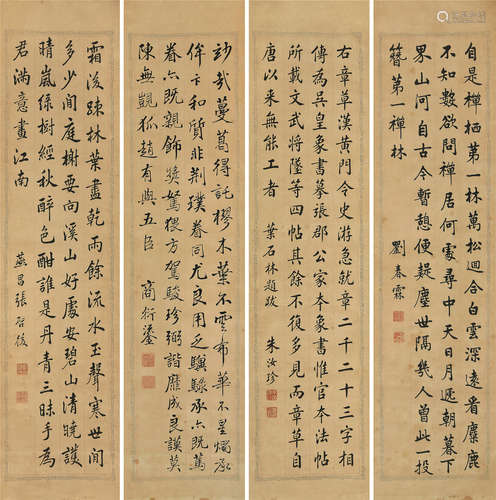 自是禪栖第一林萬松迴合白雲深看麋鹿
不知數欲問禪居何處尋中天日月遞朝暮下
界山河自古今暫憩便疑塵世隔幾人曾此一投
簪 第一禪林
劉春霖
右章草漢黃門令史游急就章二千二十三字相
傳為吳皇象書摹張郡公家本象書惟官本法帖
所載文武將墜等四帖其餘不復多見而章草自
唐以来無能工者 葉石林題跋
朱汝珍
妙哉蔓葛得託樛木葉不雲布華不星燭承
侔卞和質非荆璞眷同尤良用乏驥騄承亦既篤
眷亦既親飾獎駑猥方駕駿珍弼諧靡成良謨莫
陳無覬狐趙有與五臣
商衍鎏
霜後疎林葉盡乾雨餘流水玉聲寒世間
多少閒庭榭要向溪山好處安碧山清曉護
晴嵐綠樹經秋醉色酣誰是丹青三昧手為
君滿意畫江南
張啓後